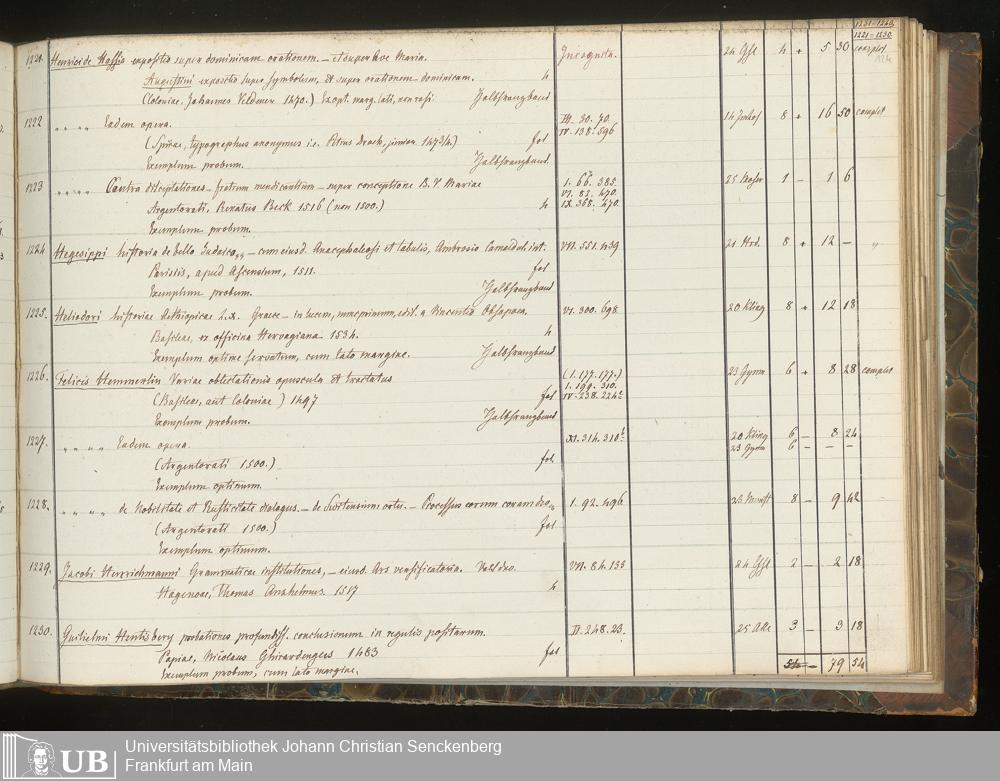 1221-1230
complet
124
1221. Henrici de Hassia expositio super dominicam orationem. – et super Ave Maria. Incognita. 24 Gfl 4 + 5 30
Augustini expositio super symbolum, et super orationem dominicam. 4
(Coloniae, Johannes Veldener 1470.) Ex opt. marg. lati, non rasi. Halbfranzband
1222 „ „ „ Eadem opera. III. 30. 70. 8 + 16 50 complet
(Spirae, typographus anonymus i.e. Petrus Drach, junior 147¾.) fol IV. 138. 596
Exemplum probum. Halbfranzband.
1223 „ „ „ Contra disceptationes – fratrum mendicantium – super conceptione B. V. Mariae 1. 66. 385. 1 – 1 6
Argentorati, Renatus Beck 1516 (non 1500.) 4 VI. 82. 470.
IX. 368. 470.
Exemplum probum.
1224 Hegesippi historia de bello Judaico, – cum eiusd. Anacephaleosi et tabulis, Ambrosio Camaldol. int. VIII. 551. 439 8 + 12 – „
Parisiis, apud Ascensium, 1511. fol
Exemplum probum. Halbfranzband
1225. Heliodori historiae Aethiopicae L. X. Graece – in lucem, nunc primum, edit. a Vincentio Obsopoeo. VI. 300. 698 20 Kling 8 + 12 18
Basileae, ex officina Hervagiana 1534. 4
Exemplum optime servatum, cum lato margine. Halbfranzband
1226. Felicis Hemmerlin Variae oblectationis opuscula et tractatus (1. 177. 177.) 23 Gymn 6 + 8 28 complet
(Basileae, aut Coloniae) 1497 fol 1. 199. 310.
IV. 238. 224
Exemplum probum. Halbfranzband
1227. „ „ „ Eadem opera. XI. 314. 310 20 Kling 6 – 8 24
(Argentorati 1500.) fol 23 Gymn 6 – – –
Exemplum optimum.
1228. „ „ „ de Nobilitate et Rusticitate dialogus. – de Switensium, ortu. – Processus eorum coram deo 1. 92. 496. 8 – 9 42
(Argentorati 1500.) fol
Exemplum optimum.
1229. Jacobi Henrichmanni Grammaticae institutiones, – eiusd. Ars versificatoria. VII. 84. 133 24 Gfl 2 – 2 18
Hagenoae, Thomas Anshelmus. 1517 4
1230. Guilielmi Hentisbery probationes profundiss. conclusionum in regulis positarum. II. 248. 23. 3 – 3 18
Papiae, Nicolaus Ghirardengus 1483 fol
Exemplum probum, cum lato margine. 54 – 79 54
Universitätsbibliothek Johann Christian Senckenberg
UB Frankfurt am Main